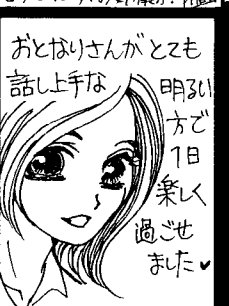 おとなりさんが とても
話し上手な
明るい
方で
1日
楽しく
過ごせ
ました♥